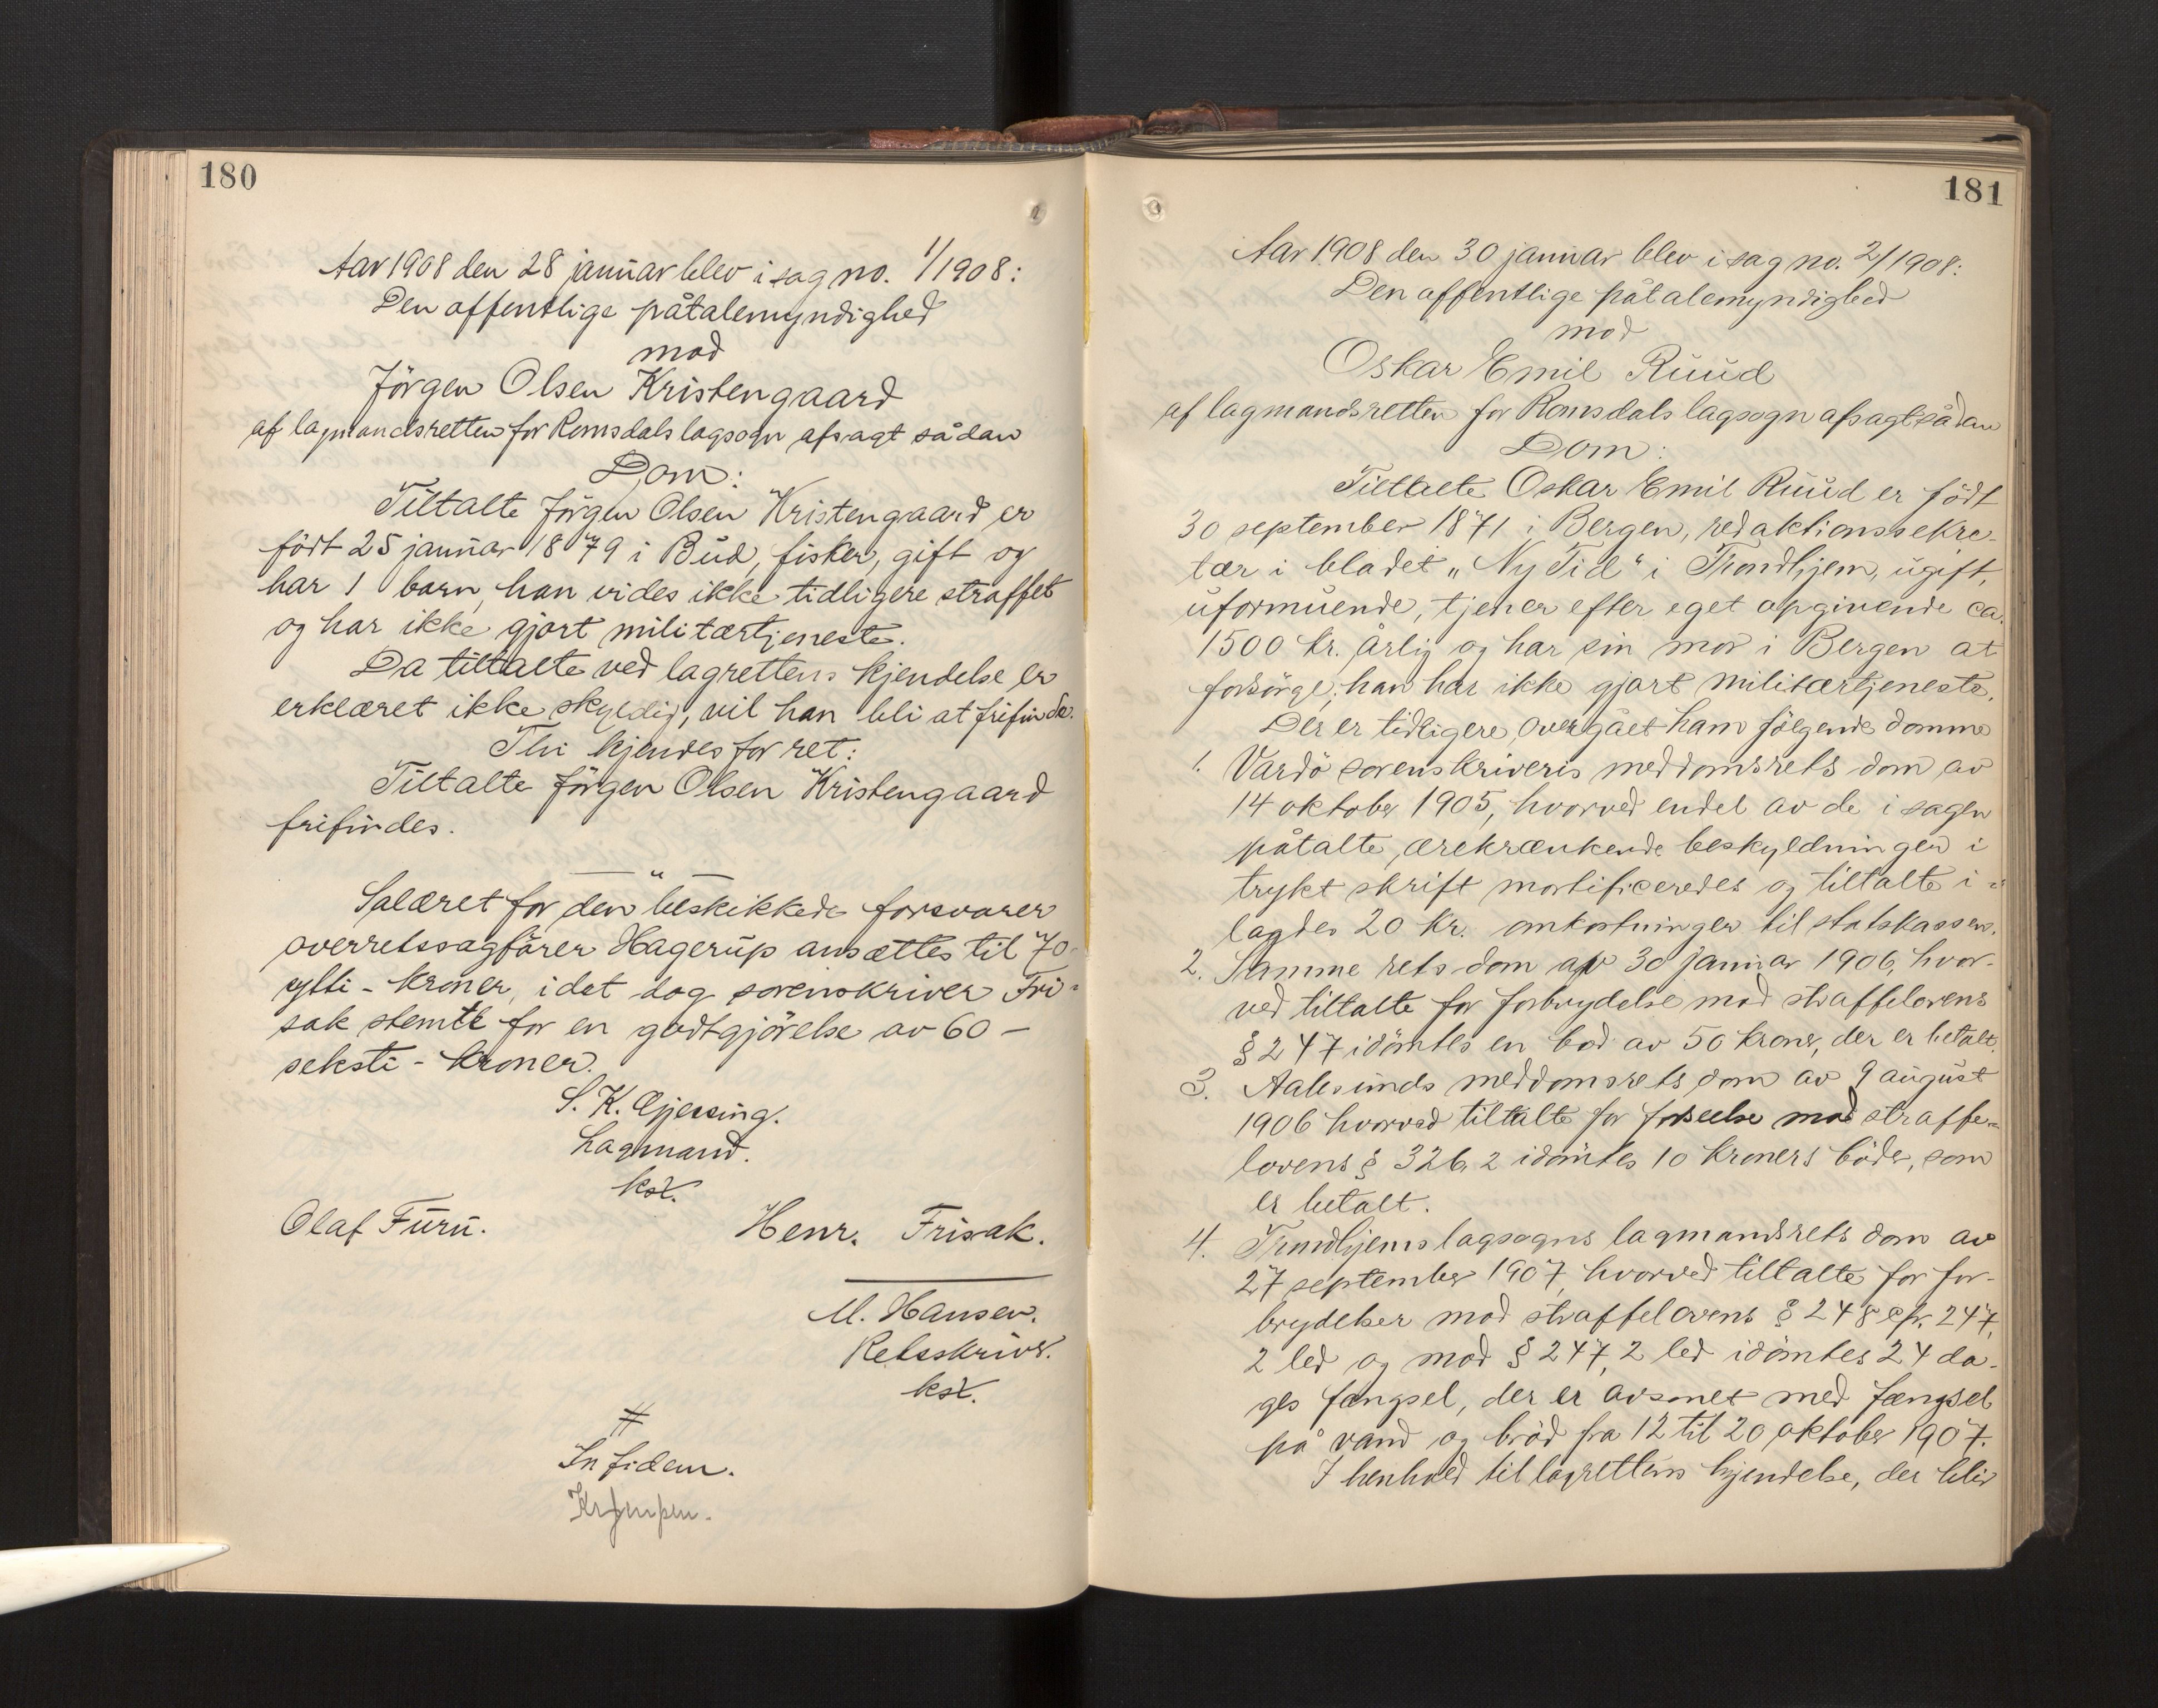 180
Aar 1908 den 28 januar blev i sag no. 1/1908:
Den offentlige påtalemyndighed
mod
Jörgen Olsen Kristengaard
af lagmandsretten for Romsdals lagsogn afsagt sådan
Dom:
Tiltalte Jörgen Olsen Kristengaard er
födt 25 januar 1879 i Bud, fisker, gift og
har 1 barn, han vides ikke tidligere straffet
og har ikke gjort militærtjeneste.
Da tiltalte ved lagrettens kjendelse er
erklæret ikke skyldig, vil han bli at frifinde.
Thi kjendes for ret:
Tiltalte Jörgen Olsen Kristengaard
frifindes.
— " —
Salæret for den beskikkede forsvarer
overretssagförer Hagerup ansættes til 70-
sytti - kroner, idet dog sorenskriver Fri-
sak stemte for en godtgjörelse av 60 -
seksti - kroner.
S. K. Gjessing.
Lagmand.
kst.
Olaf Furu. Henr. Frisak.
M. Hansen.
Retsskriver.
kst.
#
In fidem.
181
Aar 1908 den 30 januar blev i sag no. 2/1908:
Den offentlige påtalemyndighed
mod
Oskar Emil Ruud
af lagmandsretten for Romsdals lagsogn afsagt sådan
Dom:
Tiltalte Oskar Emil Ruud er födt
30 september 1871 i Bergen, redaktionssekre-
tær i bladet „Ny Tid" i Trondhjem, ugift,
uformuende, tjener efter eget opgivende ca.
1500 kr. årlig og har sin mor i Bergen at
forsörge; han har ikke gjort militærtjeneste.
Der er tidligere overgået ham fölgende domme
1. Vardö sorenskriveris meddomsrets dom av
14 oktober 1905, hvorved endel av de i sagen
påtalte, ærekrænkende beskyldninger i
trykt skrift mortificeredes og tiltalte i-
lagdes 20 kr. omkostninger til statskassen.
2. Samme rets dom av 30 januar 1906, hvor-
ved tiltalte for forbrydelse mod straffelovens
§ 247 idömtes en bod av 50 kroner, der er betalt.
3. Aalesunds meddomsrets dom av 9 august
1906 hvorved tiltalte for forseelse mod straffe-
lovens § 326, 2 idömtes 10 kroners böder, som
er betalt.
4. Trondhjems lagsogns lagmandsrets dom av
27 september 1907, hvorved tiltalte for for-
brydelser mod straffelovens § 248 cfr. 247,
2 led og mod § 247, 2 led idömtes 24 da-
ges fængsel, der er avsonet med fængsel
på vand og bröd fra 12 til 20 oktober 1907.
I henhold til lagrettens kjendelse, der blir